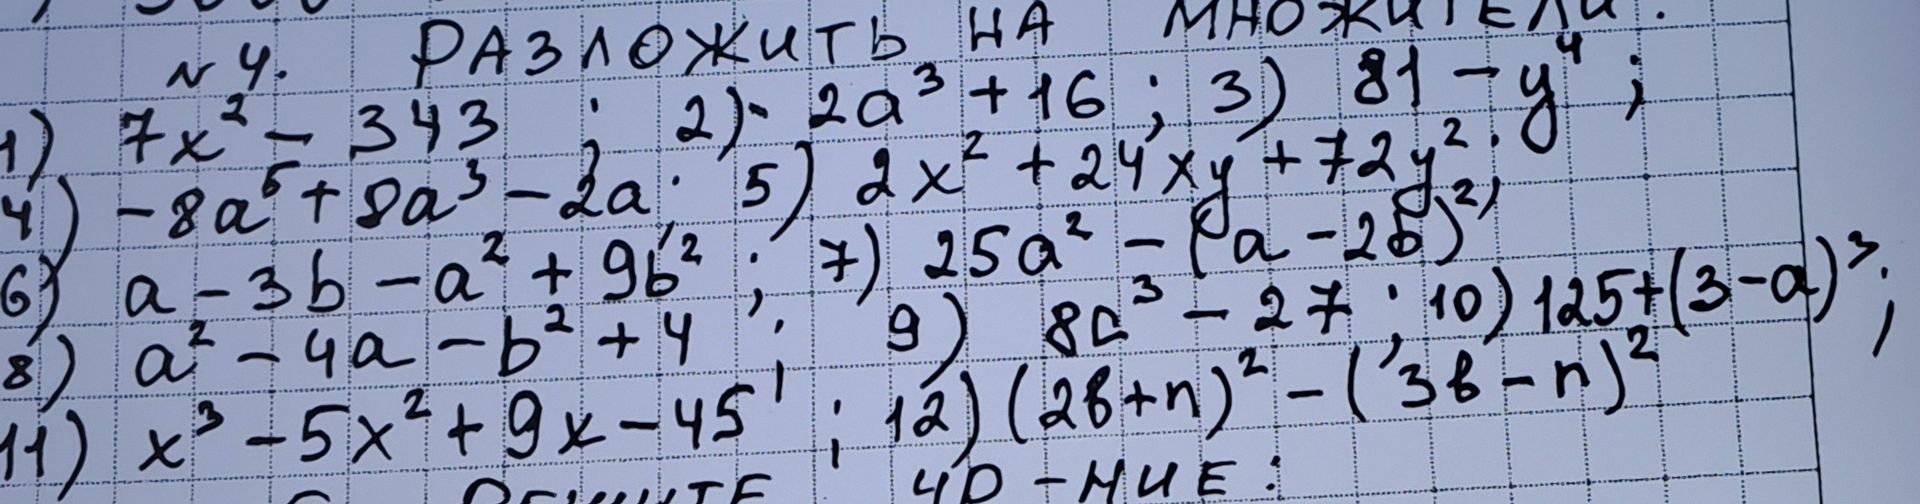 № 4. РАЗЛОЖИТЬ НА МНОЖИТЕЛИ:
1) 7x² - 343 ; 2) 2a³ + 16 ; 3) 81 - y⁴ ;
4) -8a⁵ + 8a³ - 2a ; 5) 2x² + 24xy + 72y² ;
6) a - 3b - a² + 9b² ; 7) 25a² - (a - 2b)² ;
8) a² - 4a - b² + 4 ; 9) 8a³ - 27 ; 10) 125 + (3 - a)³ ;
11) x³ - 5x² + 9x - 45 ; 12) (2b + n)² - (3b - n)²
УР-НИЕ: